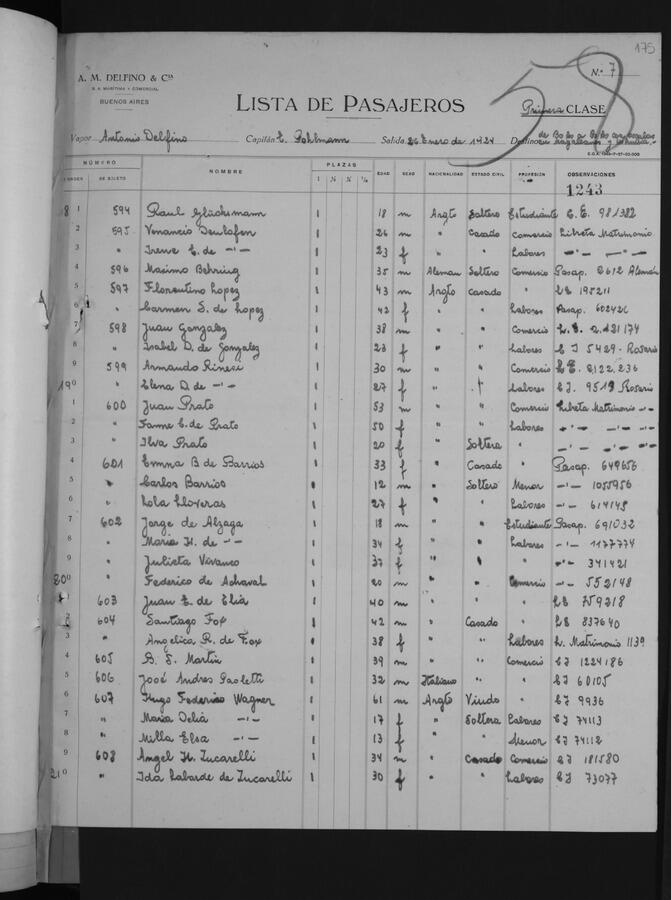 175
A. M. DELFINO & Cía
S. A. MARÍTIMA Y COMERCIAL
BUENOS AIRES
Nº 7
58
LISTA DE PASAJEROS
Primera CLASE
Vapor Antonio Delfino Capitán E. Pohlmann Salida 26 Enero de 1934 Destino
NÚMERO NOMBRE PLAZAS EDAD SEXO NACIONALIDAD ESTADO CIVIL PROFESIÓN OBSERVACIONES
DE ORDEN DE BOLETO 1 ½ ¼
1243
1 594 Raul Glücksmann 1 18 m Argto Soltero Estudiante C. E. 981382
2 595 Venancio Deulofeu 1 26 m " Casado Comercio Libreta Matrimonio
3 " Irene E. de -"- 1 23 f " " Labores -"- -"-
4 596 Maximo Behring 1 35 m Aleman Soltero Comercio Pasap. 2612 Alemán
5 597 Florentino Lopez 1 43 m Argto Casado " 195211
6 " Carmen S. de Lopez 1 42 f " " Labores Pasap. 602426
7 598 Juan Gonzalez 1 38 m " " Comercio
8 " Isabel D. de Gonzalez 1 23 f " " Labores C I 5429 - Rosario
9 599 Armando Rinesi 1 30 m " " Comercio 2122.236
190 " Elena D. de -"- 1 27 f " " Labores C I. 9519 Rosario
1 600 Juan Prato 1 53 m " " Comercio Libreta Matrimonio
2 " E. de Prato 1 50 f " " Labores -"- -"-
3 " Ilva Prato 1 20 f " Soltera " -"- -"-
4 601 Emma B de Barrios 1 33 f " Casado " Pasap. 649656
5 " Carlos Barrios 1 12 m " Soltero Menor -"- 1055956
6 " Lola Lloveras 1 27 f " " Labores -"- 614145
7 602 Jorge de Alzaga 1 18 m " " Estudiante Pasap. 691032
8 " Maria H. de -"- 1 34 f " " Labores -"- 1177774
9 " Julieta Vivanco 1 37 f " " " -"- 341421
200 " Federico de Achaval 1 20 m " " Comercio -"- 552148
1 603 Juan E. de Elia 1 40 m " " " 259218
2 604 Santiago Fox 1 42 m " Casado " 837640
3 " Angelica R. de Fox 1 38 f " " Labores L. Matrimonio 1139
4 605 B. S. Martin 1 39 m " " Comercio C I 1224186
5 606 José Andres Paoletti 1 32 m Italiano " " C I 60105
6 607 Hugo Federico Wagner 1 61 m Argto Viudo " C I 9936
7 " Maria Delia -"- 1 17 f " Soltera Labores C I 74113
8 " Milla Elsa -"- 1 13 f " " Menor C I 74112
9 608 Angel H. Zucarelli 1 34 m " Casado Comercio C I 181580
210 " Ida Labarde de Zucarelli 1 30 f " " Labores C I 73077